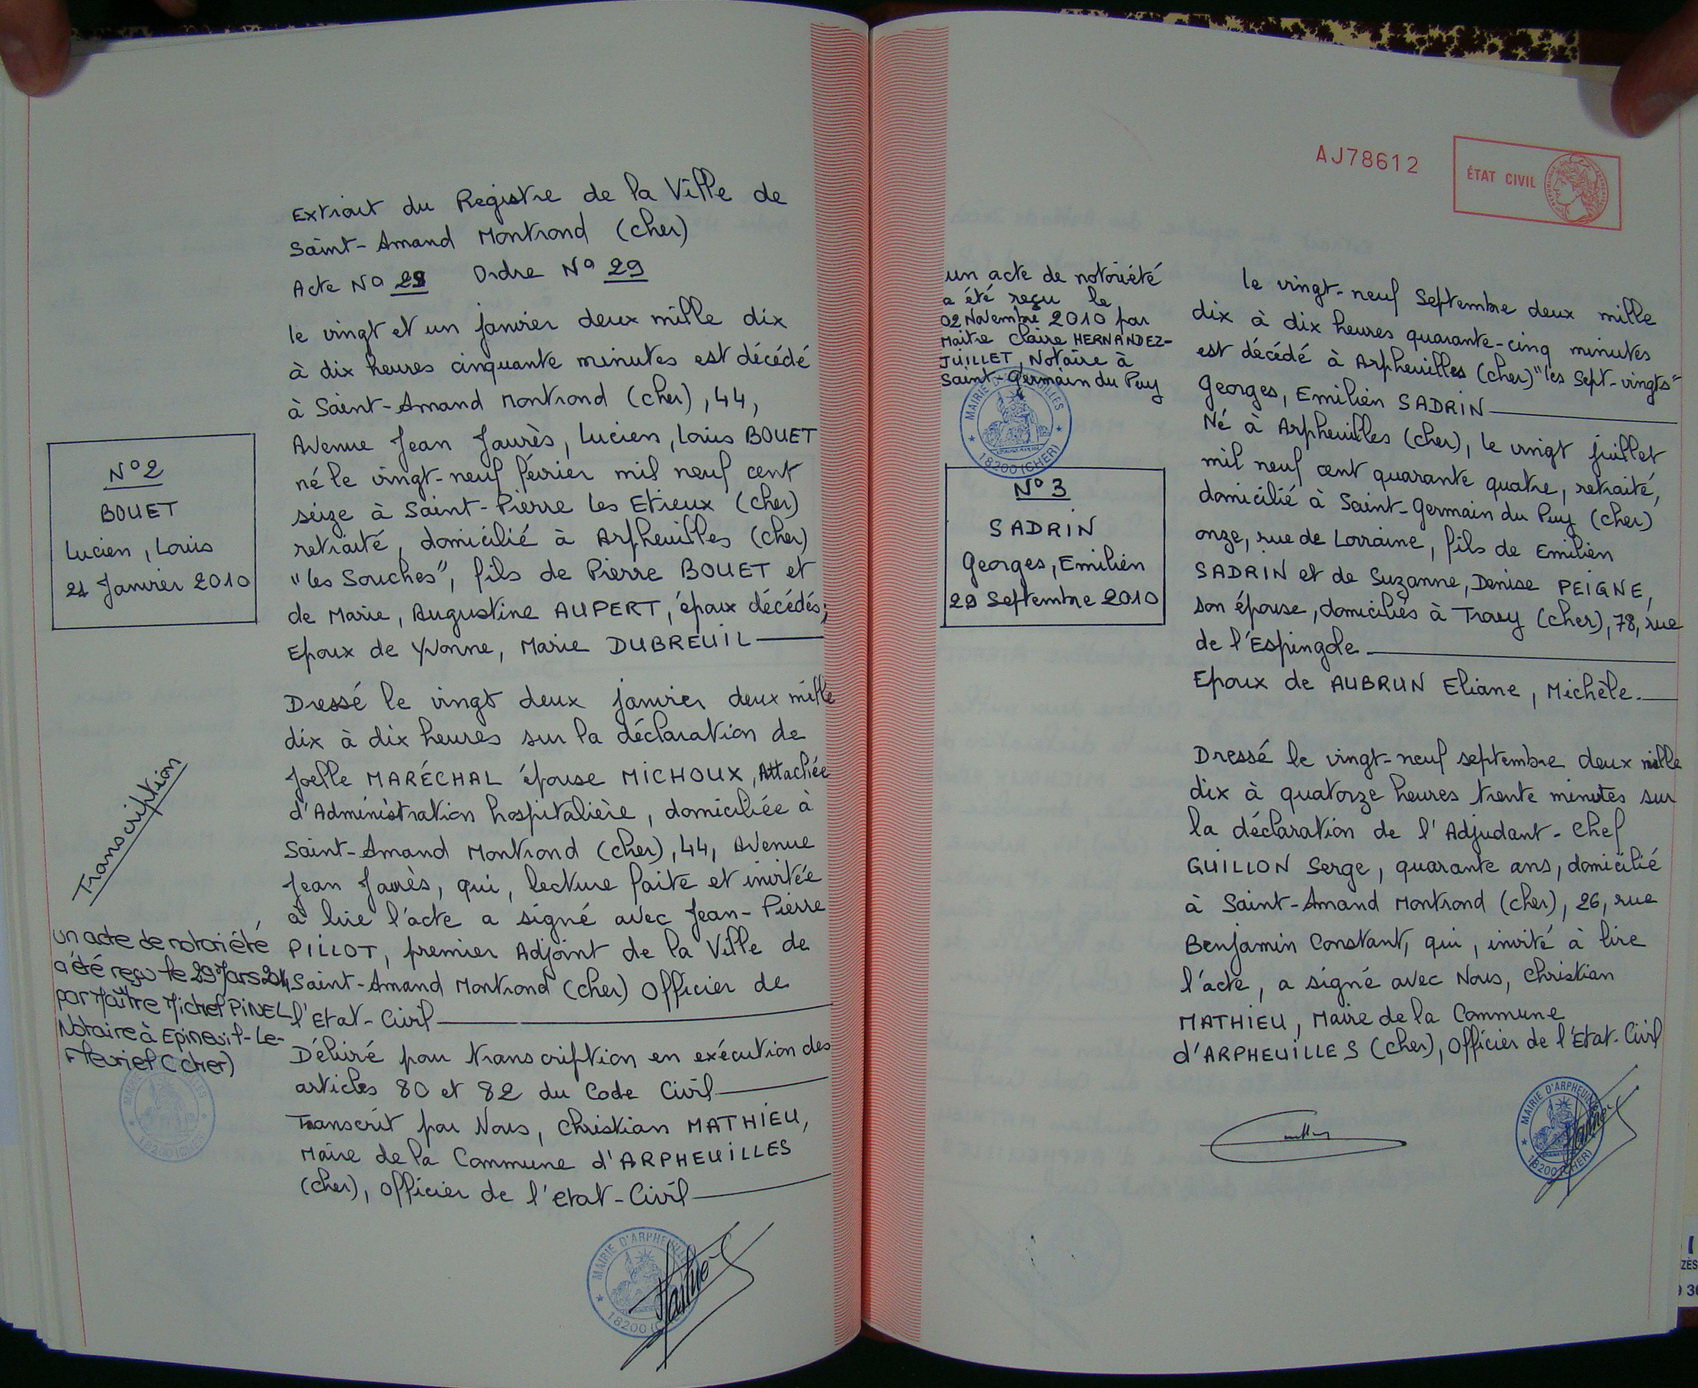 Extrait du Registre de la Ville de
Saint-Amand Montrond (Cher)
Acte No 29 Ordre No 29
le vingt et un janvier deux mille dix
à dix heures cinquante minutes est décédé
à Saint-Amand Montrond (Cher), 44,
Avenue Jean Jaurès, Lucien, Louis BOUET
né le vingt-neuf février mil neuf cent
seize à Saint-Pierre les Etieux (Cher)
retraité, domicilié à Arpheuilles (Cher)
"les Souches", fils de Pierre BOUET et
de Marie, Augustine AUPERT, époux décédés;
Epoux de Yvonne, Marie DUBREUIL
Dressé le vingt deux janvier deux mille
dix à dix heures sur la déclaration de
Joelle MARÉCHAL épouse MICHOUX, Attachée
d'Administration hospitalière, domiciliée à
Saint-Amand Montrond (Cher), 44, Avenue
Jean Jaurès, qui, lecture faite et invitée
à lire l'acte a signé avec Jean-Pierre
PILLOT, premier Adjoint de la Ville de
Saint-Amand Montrond (Cher) Officier de
l'Etat-Civil
Délivré pour transcription en exécution des
articles 80 et 82 du Code Civil
Transcrit par Nous, Christian MATHIEU,
Maire de la Commune d'ARPHEUILLES
(Cher), Officier de l'Etat-Civil
N° 2
BOUET
Lucien, Louis
21 Janvier 2010
Transcription
un acte de notoriété
a été reçu le 29 Mars
par Maître Michel PINEL
Notaire à Epineuil-Le-
Fleuriel (Cher)
MAIRIE D'ARPHEUILLES
18200 (CHER)
AJ78612
ÉTAT CIVIL
un acte de notoriété
a été reçu le
02 Novembre 2010 par
Maître Claire HERNANDEZ-
JUILLET, Notaire à
Saint-Germain du Puy
MAIRIE D'ARPHEUILLES
18200 (CHER)
N° 3
SADRIN
Georges, Emilien
29 Septembre 2010
le vingt-neuf Septembre deux mille
dix à dix heures quarante-cinq minutes
est décédé à Arpheuilles (Cher) "les Sept-vingts"
Georges, Emilien SADRIN
Né à Arpheuilles (Cher), le vingt juillet
mil neuf cent quarante quatre, retraité,
domicilié à Saint-Germain du Puy (Cher)
onze, rue de Lorraine, fils de Emilien
SADRIN et de Suzanne, Denise PEIGNE,
son épouse, domiciliés à Trouy (Cher), 78, rue
de l'Espingole
Epoux de AUBRUN Eliane, Michèle.
Dressé le vingt-neuf septembre deux mille
dix à quatorze heures trente minutes sur
la déclaration de l'Adjudant-Chef
GUILLON Serge, quarante ans, domicilié
à Saint-Amand Montrond (Cher), 26, rue
Benjamin Constant, qui, invité à lire
l'acte, a signé avec Nous, Christian
MATHIEU, Maire de la Commune
d'ARPHEUILLES (Cher), Officier de l'Etat-Civil
MAIRIE D'ARPHEUILLES
18200 (CHER)